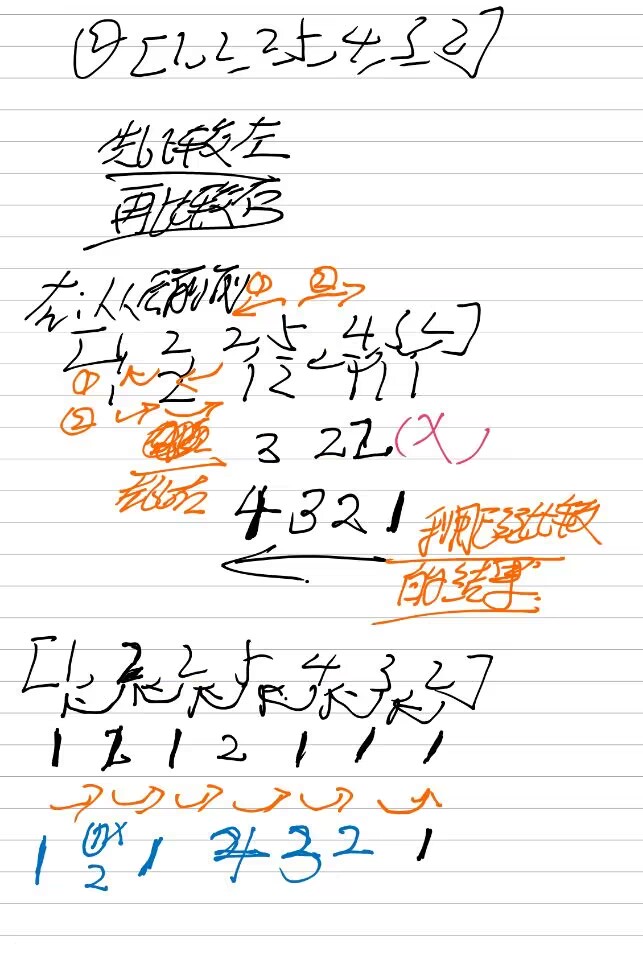 ② [1, 2, 2, 5, 4, 3, 2]
先比较左
再比较右
左:从后前 ① ②
[1, 2, 2, 5, 4, 3, 2]
① 1 2 1 2 1 1 1
②
3 2 2 (X)
先比右
4 3 2 1 利用已经比较
的结果
[1, 2, 2, 5, 4, 3, 2]
1 2 1 2 1 1 1
1 ① X 1 4 3 2 1
2